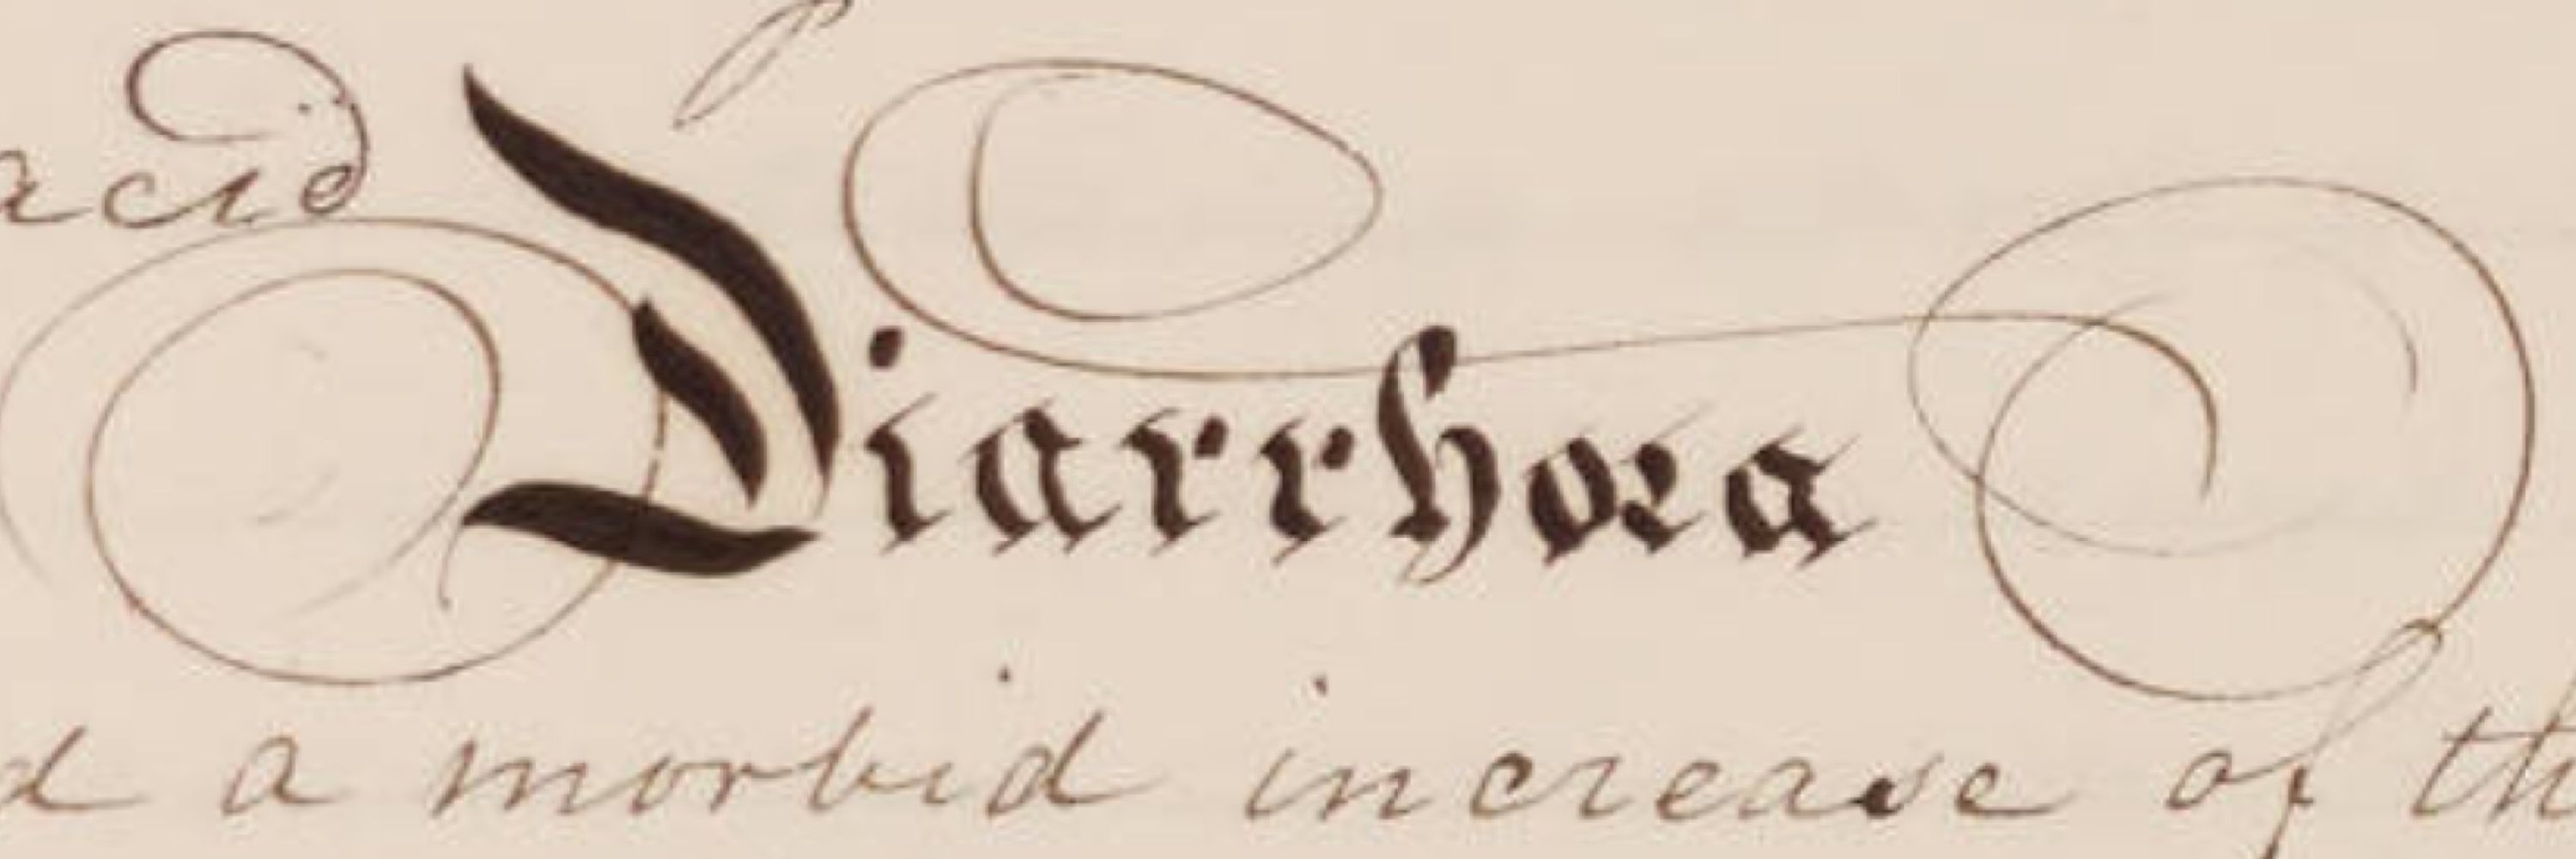 acid
Diarrhoea
d a morbid increase of th